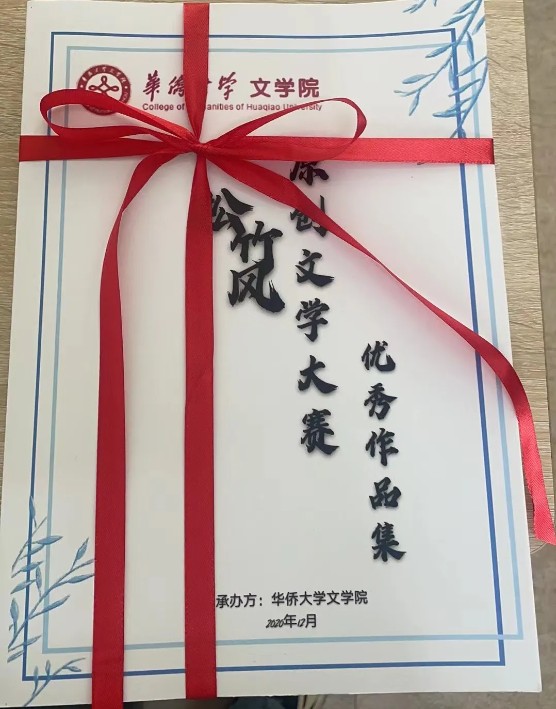 华侨大学 文学院
College of Humanities of Huaqiao University
松竹风
原创文学大赛
优秀作品集
承办方：华侨大学文学院
2020年12月